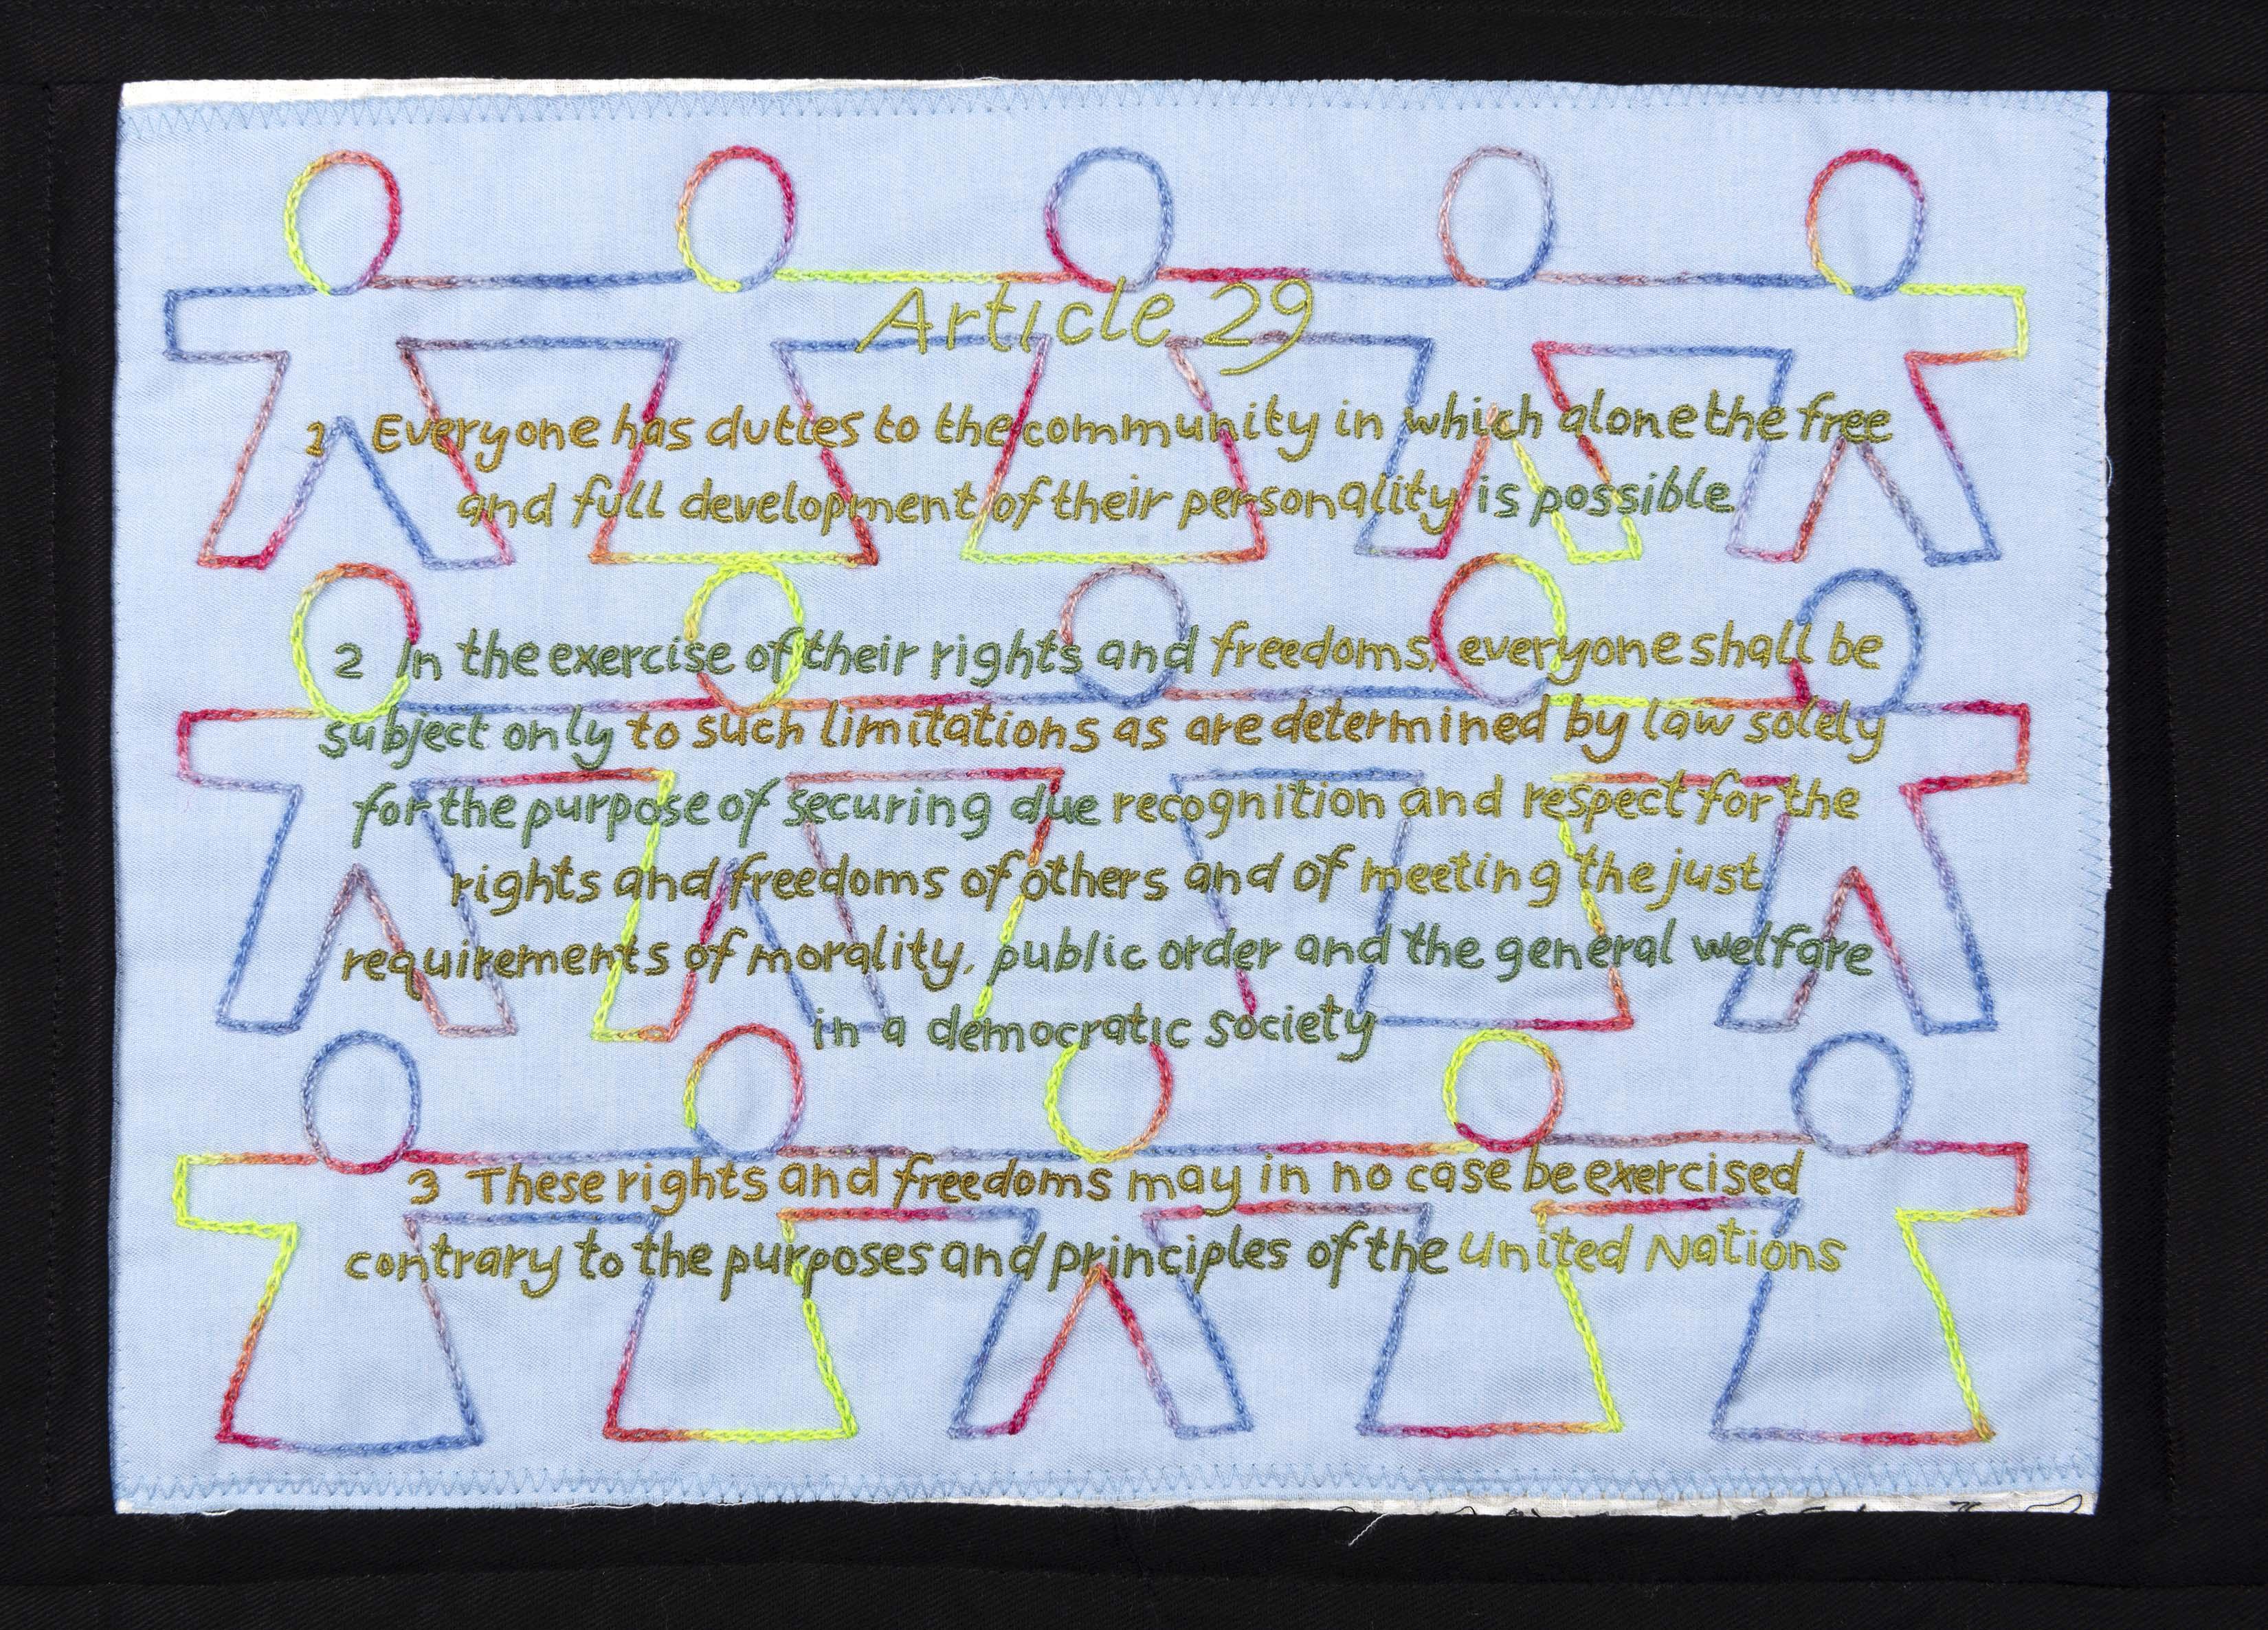 Article 29
1 Everyone has duties to the community in which alone the free
and full development of their personality is possible
2 In the exercise of their rights and freedoms, everyone shall be
subject only to such limitations as are determined by law solely
for the purpose of securing due recognition and respect for the
rights and freedoms of others and of meeting the just
requirements of morality, public order and the general welfare
in a democratic society
3 These rights and freedoms may in no case be exercised
contrary to the purposes and principles of the United Nations